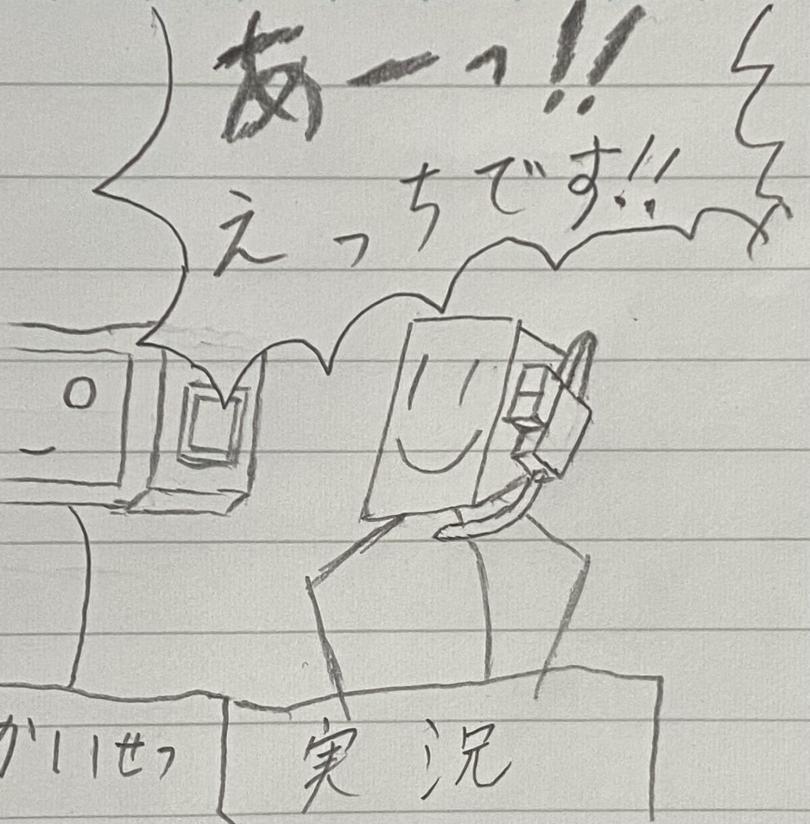 あーっ!!
えっちです!!
かいせつ
実況